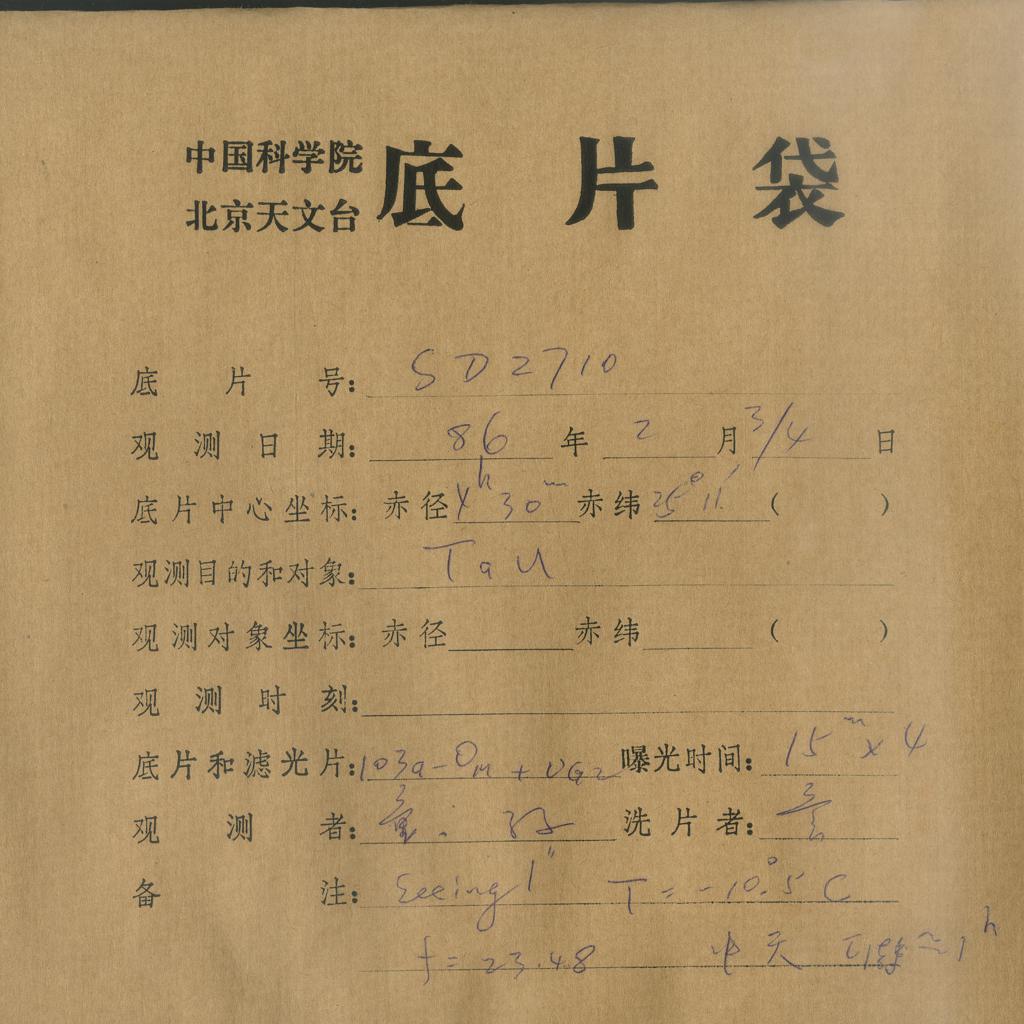 中国科学院
北京天文台
底片袋
底片号: SD2710
观测日期: 86年2月3/4日
底片中心坐标: 赤径4h30m赤纬25°11′( )
观测目的和对象: Tau
观测对象坐标: 赤径 赤纬 ( )
观测时刻:
底片和滤光片: 103a-O + UG2 曝光时间: 15m x 4
观测者: 洗片者:
备注: Seeing 1" T = -10°.5 C
f = 23.48 中天 ≈1h